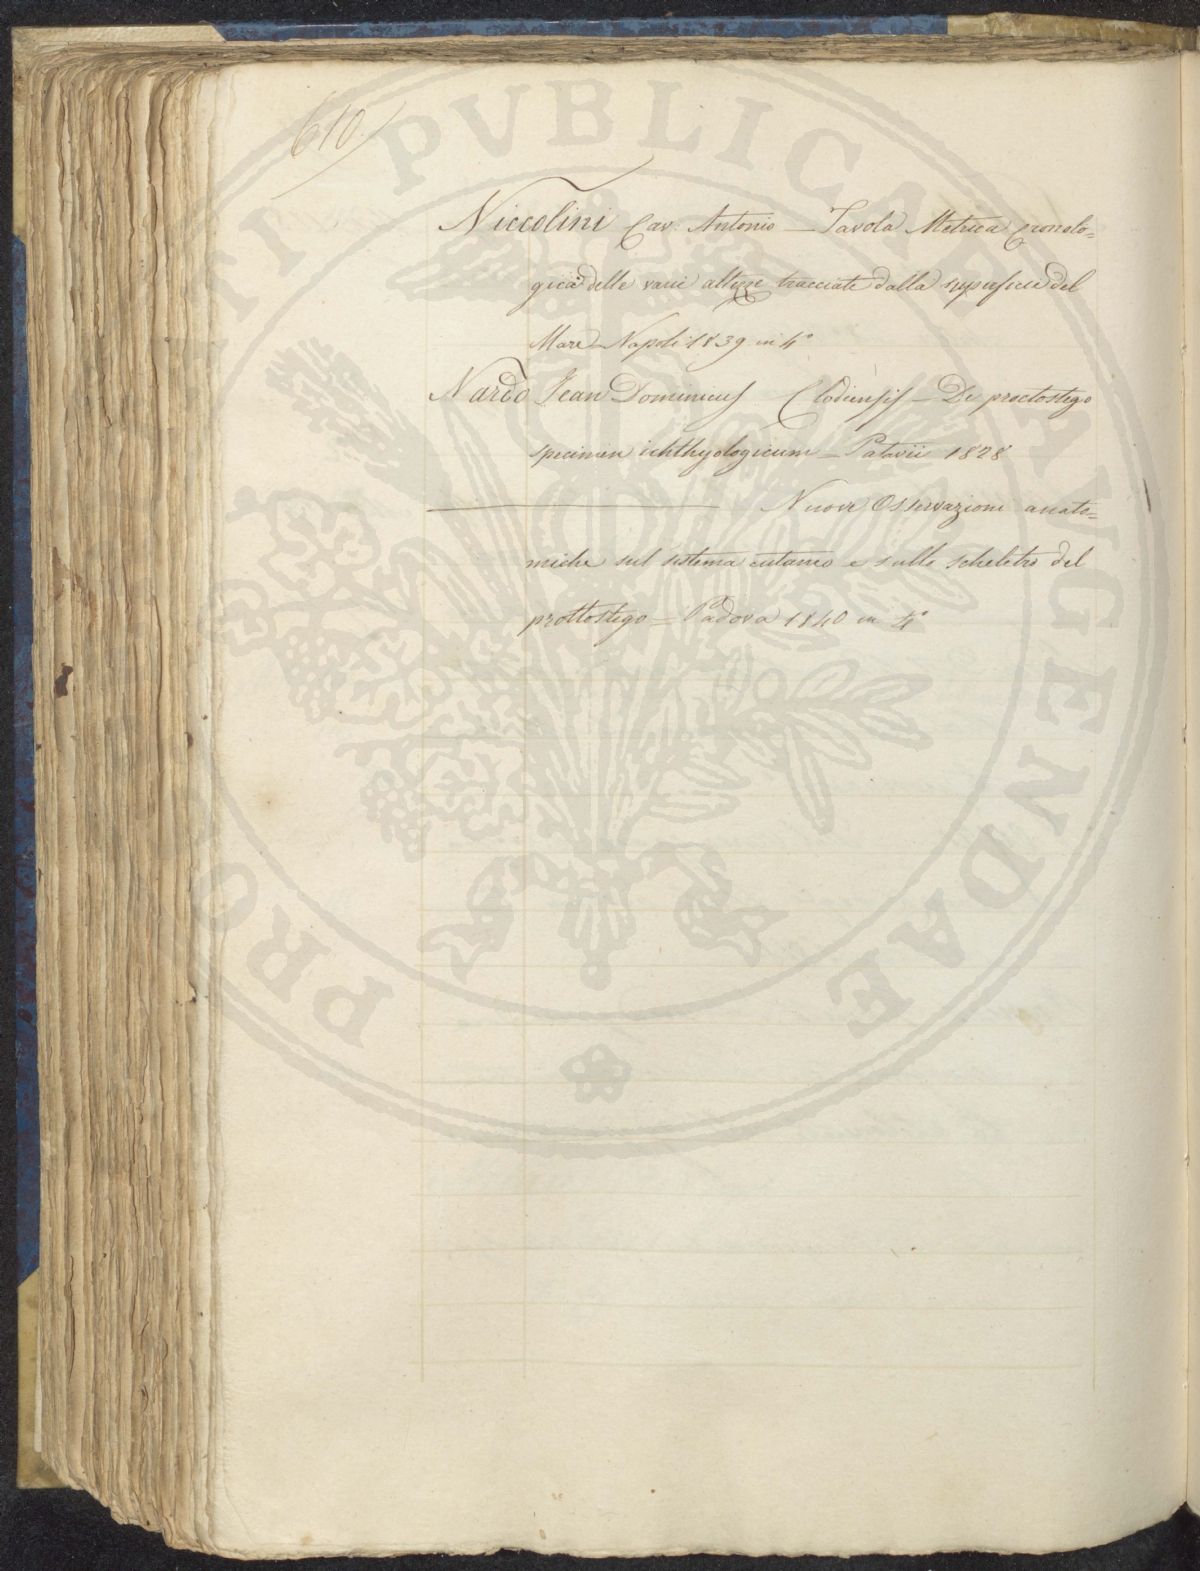 610.
Niccolini Cav. Antonio — Tavola Metrica Cronolo=
gica delle varie altezze tracciate dalla superficie del
Mare — Napoli 1839 in 4°
Nardo Jean Dominicus Clodiensis — De proctostego
specimen ichthyologicum — Patavii 1828
Nuove Osservazioni anato=
miche sul sistema cutaneo e sullo scheletro del
prottostego — Padova 1840 in 4°
PVBLICAE
AVGENDAE
PRO